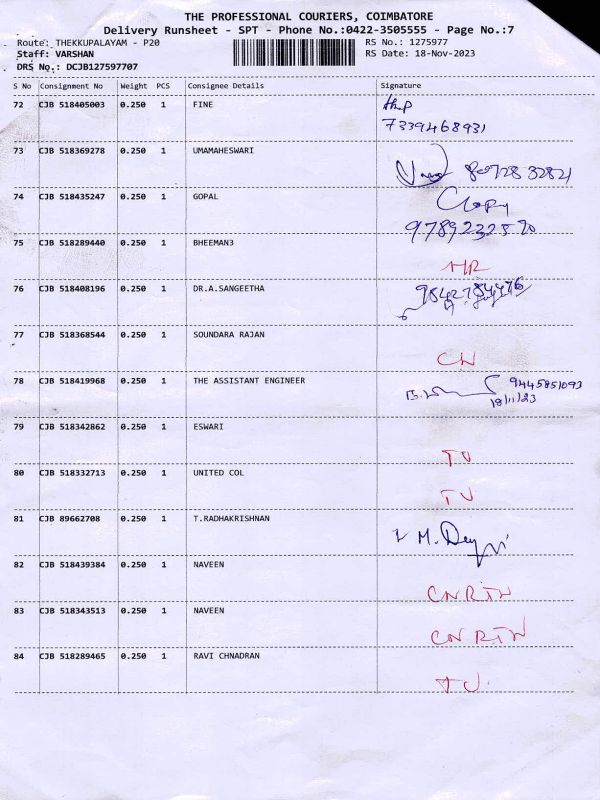 THE PROFESSIONAL COURIERS, COIMBATORE
Delivery Runsheet - SPT - Phone No.:0422-3505555 - Page No.:7
Route: THEKKUPALAYAM - P20 RS No.: 1275977
Staff: VARSHAN RS Date: 18-Nov-2023
DRS No.: DCJB127597707
S No Consignment No Weight PCS Consignee Details Signature
72 CJB 518405003 0.250 1 FINE
7339468931
73 CJB 518369278 0.250 1 UMAMAHESWARI
8072832821
74 CJB 518435247 0.250 1 GOPAL
75 CJB 518289440 0.250 1 BHEEMAN3
76 CJB 518408196 0.250 1 DR.A.SANGEETHA
9842784476
77 CJB 518368544 0.250 1 SOUNDARA RAJAN
78 CJB 518419968 0.250 1 THE ASSISTANT ENGINEER
9445851093
18/11/23
79 CJB 518342862 0.250 1 ESWARI
TU
80 CJB 518332713 0.250 1 UNITED COL
TU
81 CJB 89662708 0.250 1 T.RADHAKRISHNAN
82 CJB 518439384 0.250 1 NAVEEN
CNRTN
83 CJB 518343513 0.250 1 NAVEEN
CNRTN
84 CJB 518289465 0.250 1 RAVI CHNADRAN
TU